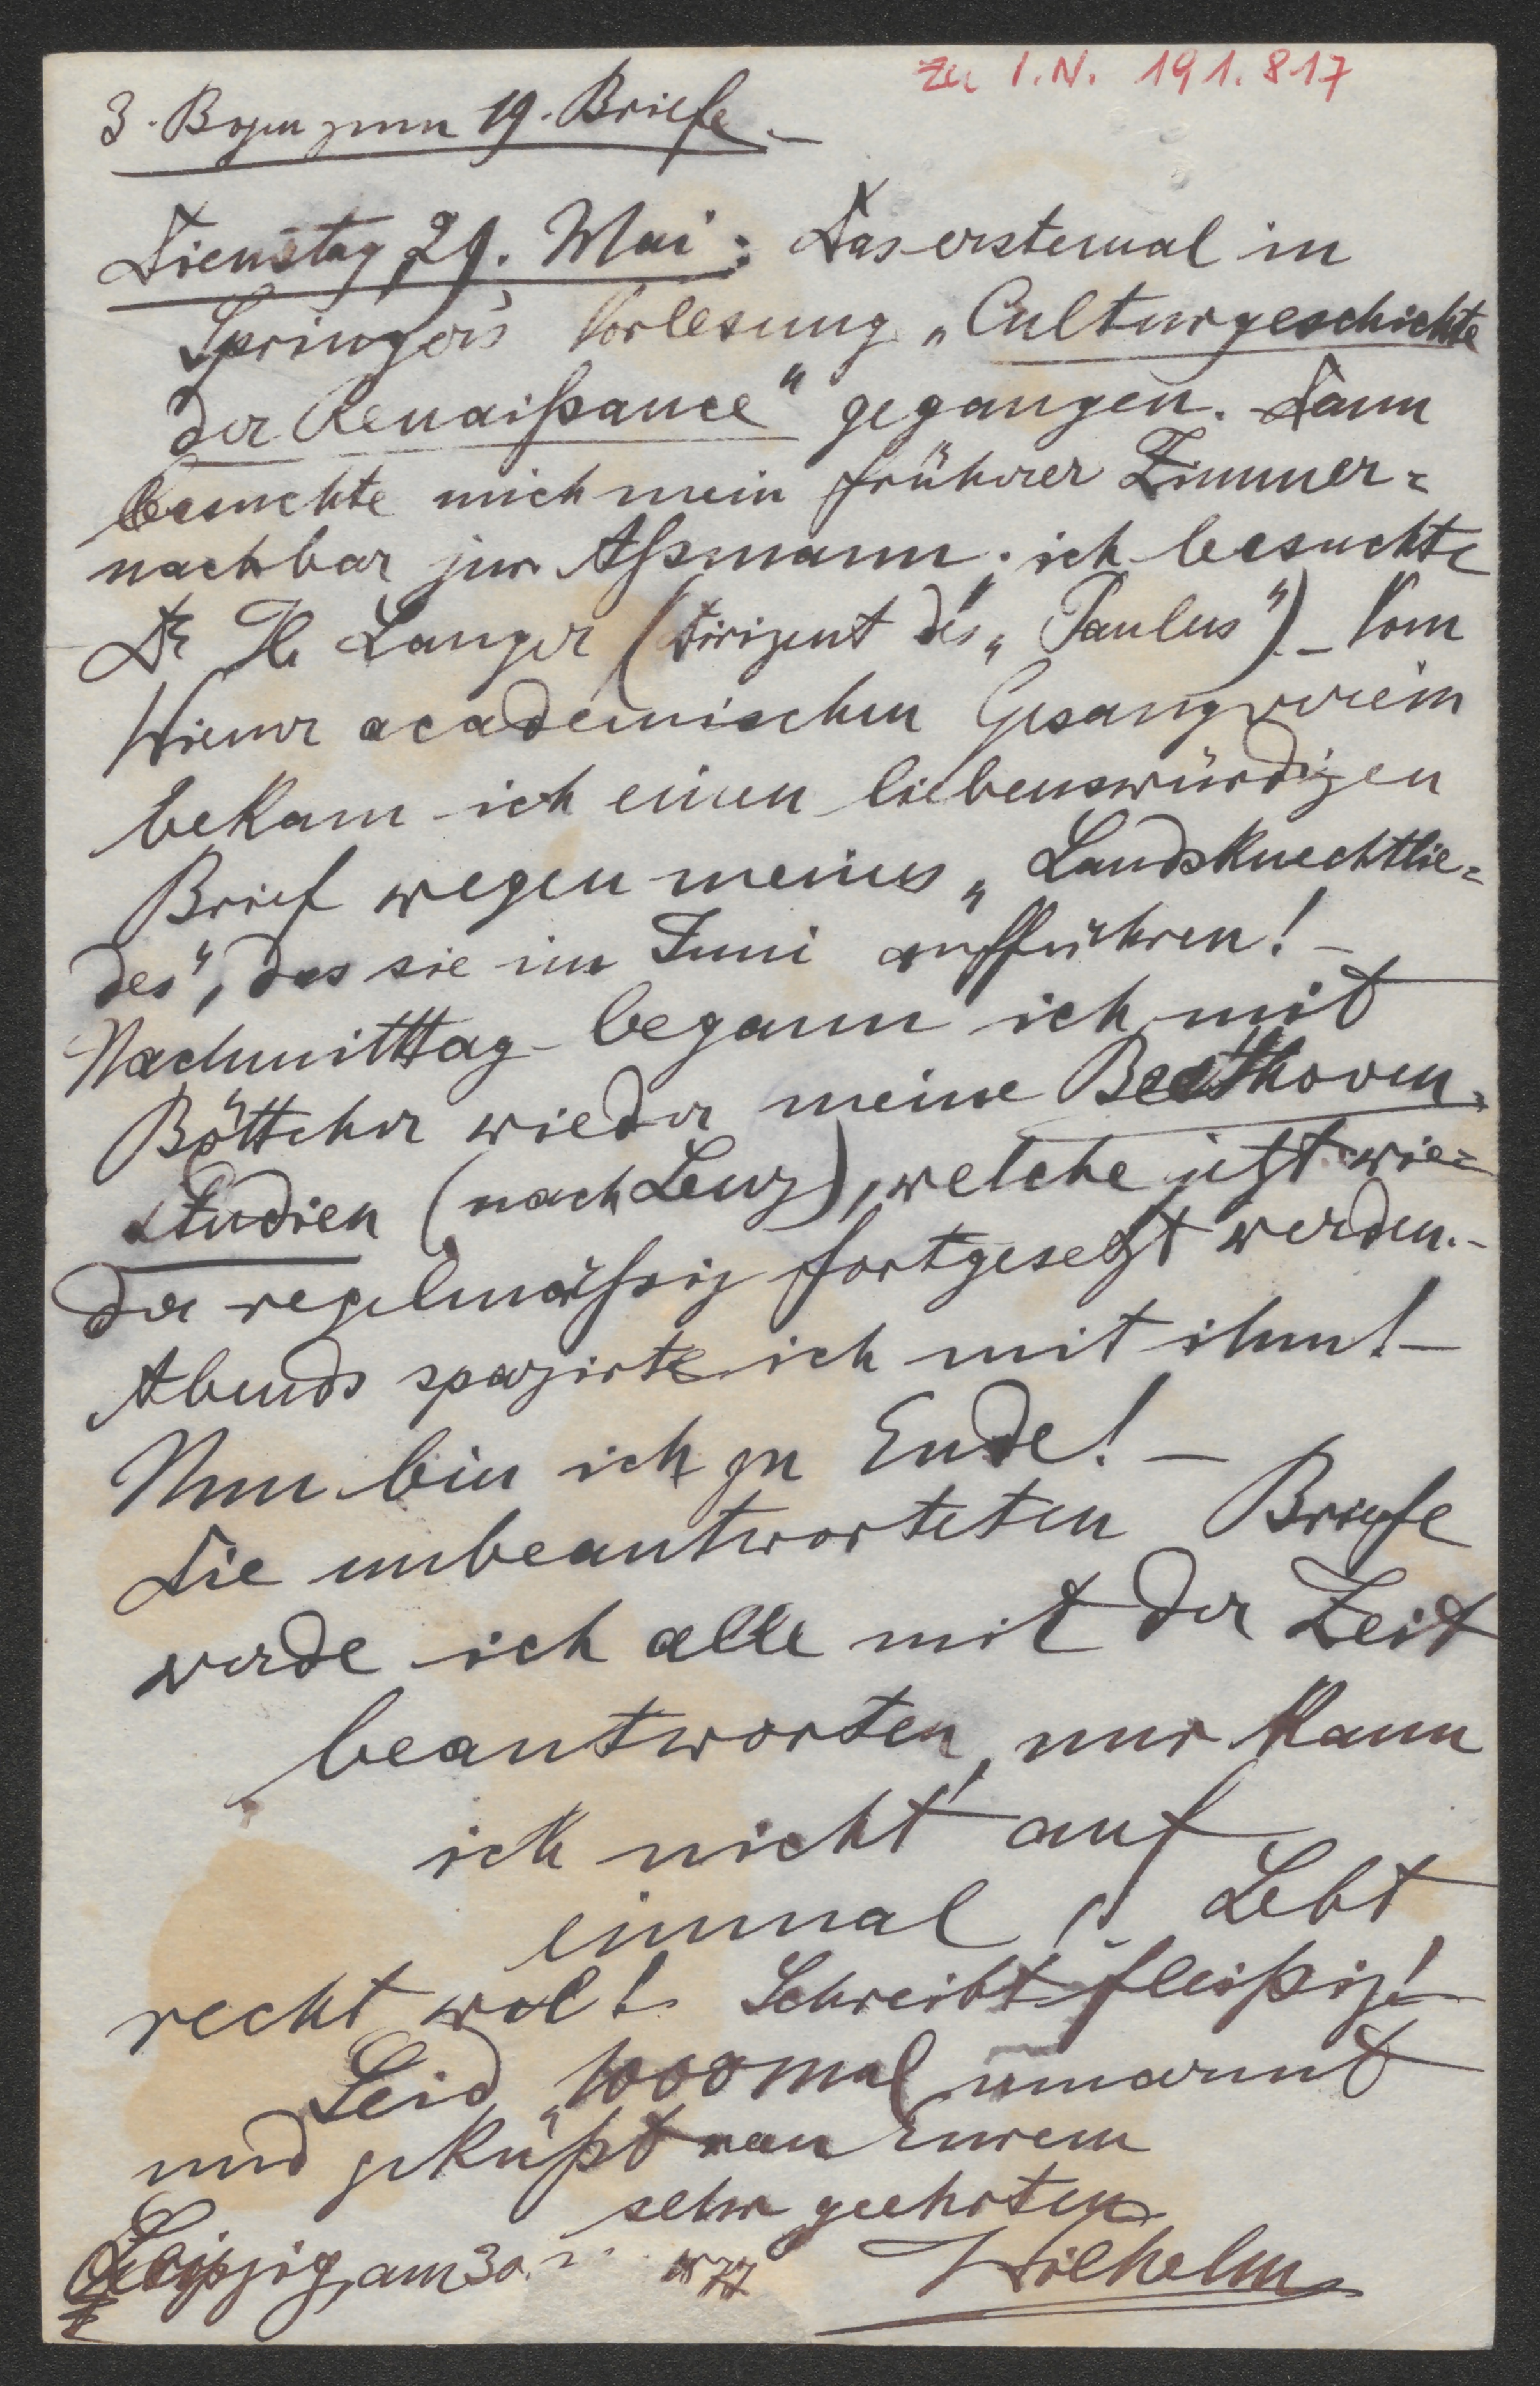 zu I.N. 191.817
3. Bogen zum 19. Briefe.—
Dienstag, 29. Mai: Das erstemal in
Springer's Vorlesung „Culturgeschichte
der Renaißance" gegangen. Dann
besuchte mich mein früherer Zimmer=
nachbar jur. Aßmann; ich besuchte
Dr H. Langer (Dirigent des „Paulus") – Vom
Wiener academischen Gesangverein
bekam ich einen liebenswürdigen
Brief wegen meines „Landsknechtlie=
des", das sie im Juni aufführen! –
Nachmitttag begann ich mit
Böttcher wieder meine Beethoven=
studien (nach Lenz), welche jetzt wie=
der regelmäßig fortgesetzt werden. –
Abends spazirte ich mit ihm! –
Nun bin ich zu Ende! –
Die unbeantworteten Briefe
werde ich alle mit der Zeit
beantworten, nur kann
ich nicht auf
einmal! Lebt
recht wol! Schreibt fleißig!
Seid 1000mal umarmt
und geküßt von Eurem
sehr geehrten
Leipzig, am 30. 77 Wilhelm